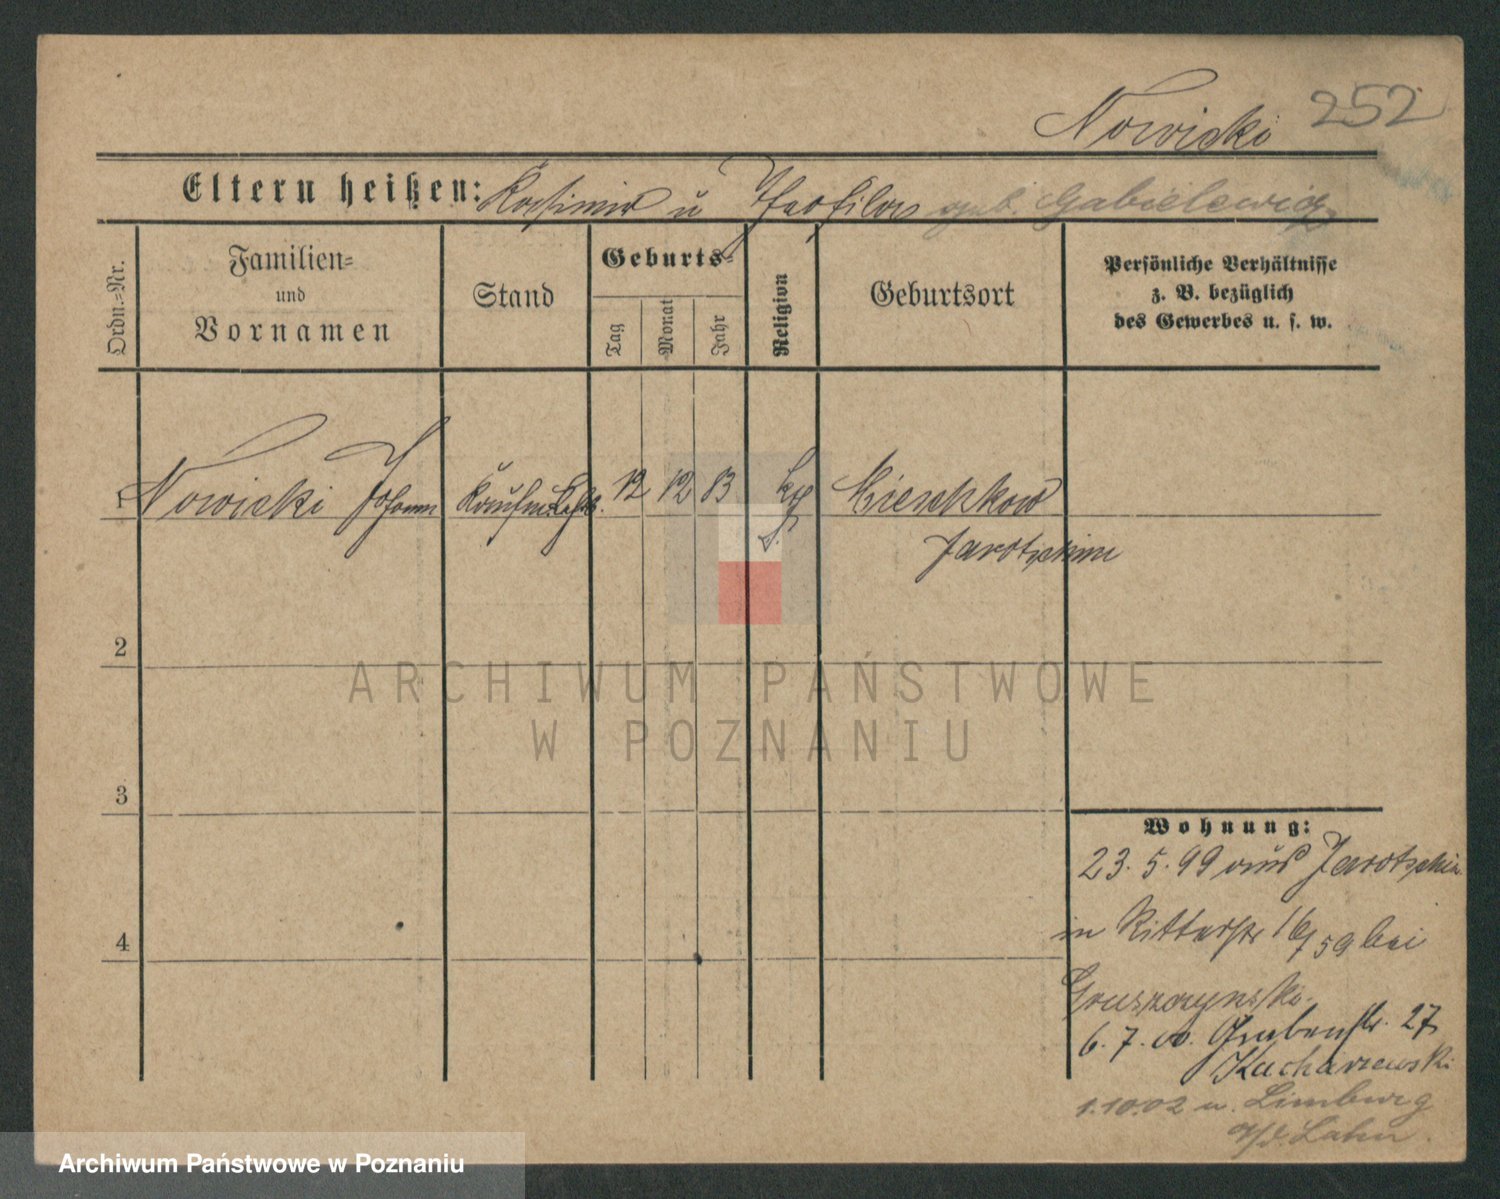 Nowicki 252
Eltern heißen: Kasimir u Theofila geb. Gabielewicz
Ordn.=Nr.
Familien=
und
Vornamen
Stand
Geburts=
Tag
Monat
Jahr
Religion
Geburtsort
Persönliche Verhältnisse
z. B. bezüglich
des Gewerbes u. s. w.
1 Nowicki Johann 12 12 83 Mieschkow
Jarotschin
2
3
4
Wohnung:
23. 5. 99 aus Jarotschin
in Ritterstr 16/59 bei
Gruszczynski.
6. 7. 00. Grabenstr. 27
Kucharzewski
1.10.02 n. Limburg
a/d. Lahn.
ARCHIWUM PAŃSTWOWE
W POZNANIU
Archiwum Państwowe w Poznaniu